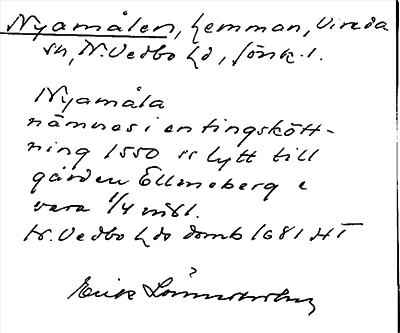 Nyamålen, hemman, Vireda
sn, N. Vedbo hd, Jönk. l.
Nyamåla
nämnes i en tingskött-
ning 1550 s lytt till
gården Ellmeberg e
vara 1/4 mtl.
N. Vedbo hds domb 1681 HT
Erik